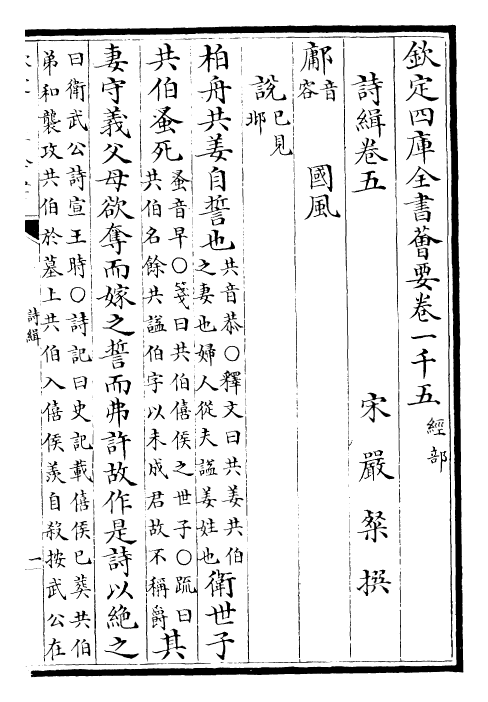 欽定四庫全書薈要卷一千五 經部
詩緝卷五
宋 嚴粲 撰
鄘音容 國風
說已見邶
柏舟共姜自誓也共音恭○釋文曰共姜共伯之妻也婦人從夫謚姜姓也衛世子
共伯蚤死蚤音早○箋曰共伯僖侯之世子○疏曰共伯名餘共謚伯字以未成君故不稱爵其
妻守義父母欲奪而嫁之誓而弗許故作是詩以絶之
曰衛武公詩宣王時○詩記曰史記載僖侯已葬共伯
弟和襲攻共伯於墓上共伯入僖侯羨自殺按武公在
詩緝
一